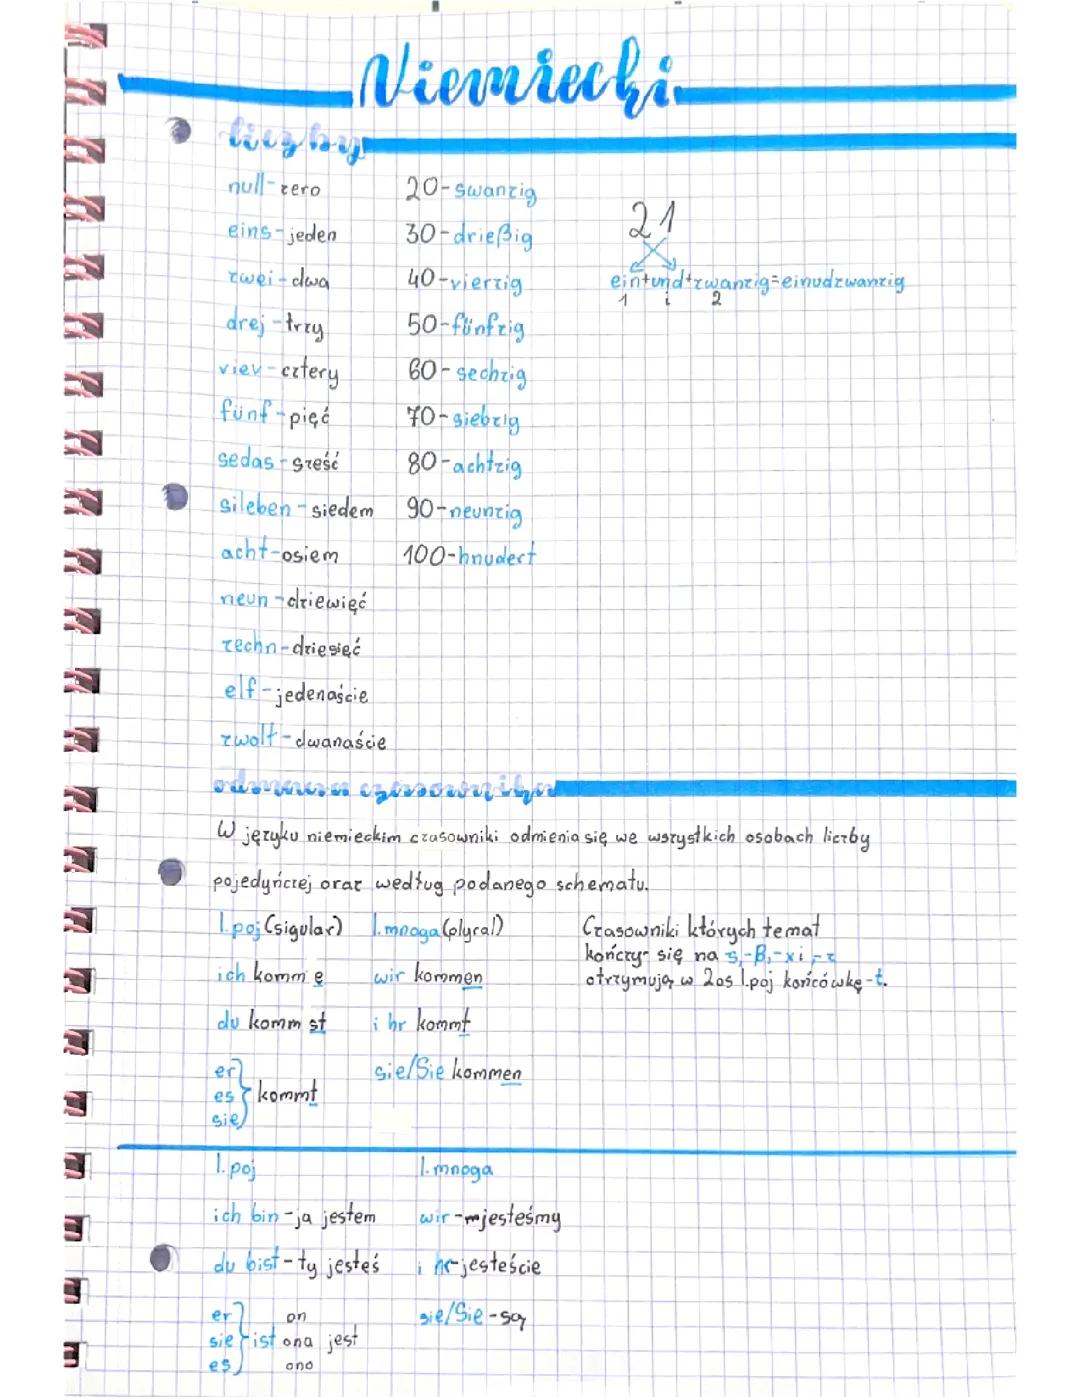 Niemiecki
liczby
null-zero 20-swanzig
21
eins-jeden 30-drießig
zwei-dwa 40-vierzig ein+und+zwanzig=einudzwanzig
1 i 2
drej-trzy 50-fünfzig
viev-cztery 60-sechzig
fünf-pięć 70-siebzig
sedas-sześć 80-achtzig
sileben-siedem 90-neunzig
acht-osiem 100-hnudert
neun-dziewięć
zechn-dziesięć
elf-jedenaście
zwolf-dwanaście
odmiana czasownika
W języku niemieckim czasowniki odmienia się we wszystkich osobach liczby
pojedyńczej oraz według podanego schematu.
l.poj (sigular) l.mnoga (plyral) Czasowniki których temat
kończy się na s,-ß,-x i,-z
ich komm e wir kommen otrzymują w 2os l.poj końcówkę -t.
du komm st i hr kommt
er sie/Sie kommen
es kommt
sie
l.poj l.mnoga
ich bin-ja jestem wir-mjesteśmy
du bist-ty jesteś i hr-jesteście
er on sie/Sie-są
sie ist ona jest
es ono